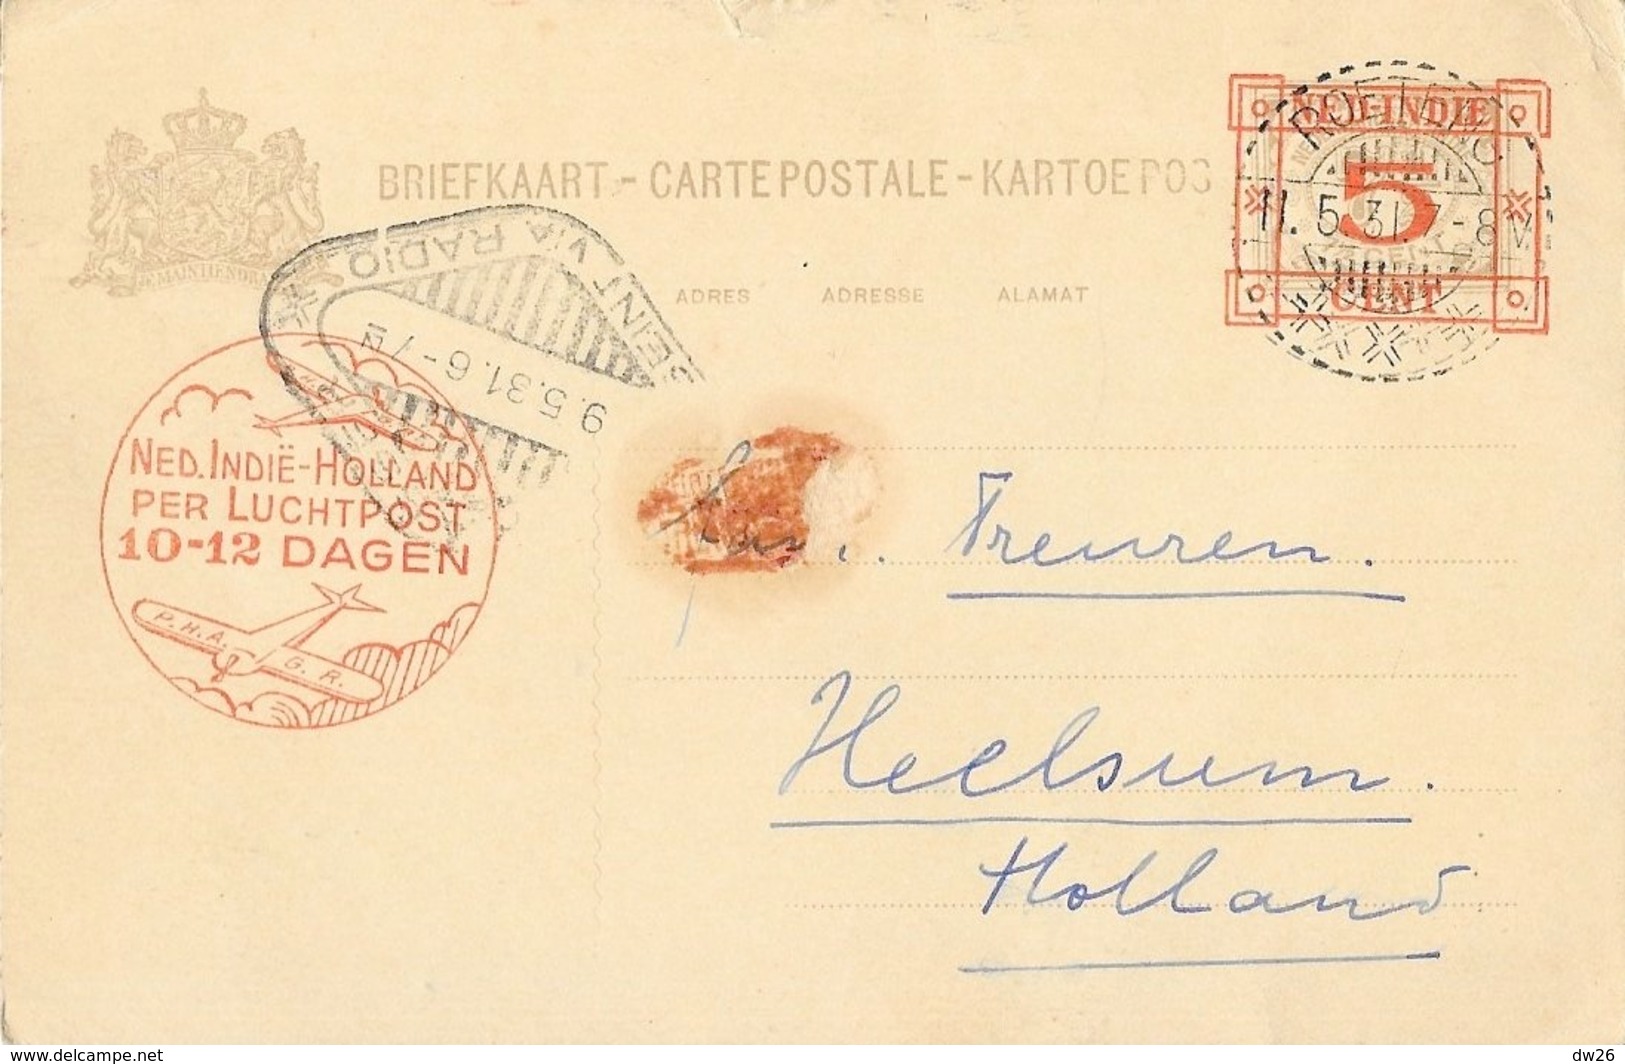 JE MAINTIENDRAI
BRIEFKAART - CARTE POSTALE - KARTOE POS
NED-INDIE
5
CENT
ROETENG
11.5.31.7-8 V.
ADRES ADRESSE ALAMAT
SENT VIA RADIO
9.5.31.6-7 N
NED. INDIË-HOLLAND
PER LUCHTPOST
10-12 DAGEN
P.H.A.
G.R.
Treuren.
Heelsum.
Holland
www.delcampe.net
dw26